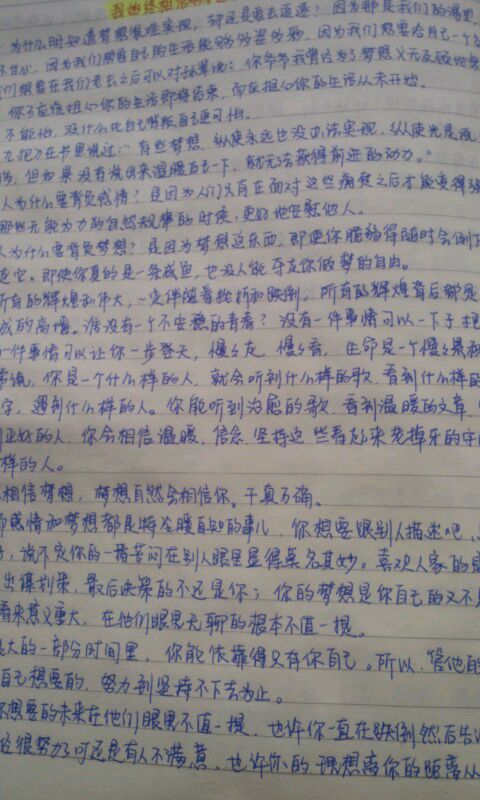 我也终相信
为什么明知道梦想很难实现，却还是要去追逐？因为那是我们的渴望，
不甘心，因为我们想要自己的生活能够多姿多彩，因为我们想要给自己一个
们想要在我们老去之后可以对孙辈说：你爷爷我曾经为了梦想义无反顾地
你不应该担心你的生活即将结束，而应担心你的生活从未开始。
不能怕，没什么比自己背叛自己更可怕。
九把刀在书里说过："有些梦想，纵使永远也没办法实现，纵使光是说
但如果没有说出来温暖自己一下，就无法获得前进的动力。"
人为什么要背负感情？是因为人们只有在面对这些痛楚之后才能变得强
那些无能为力的自然规律的时候，更好地安慰他人。
人为什么要背负梦想？是因为梦想这东西，即使你脆弱得随时会倒下
走它。即使你真的是一条咸鱼，也没人能夺走你做梦的自由。
所有的辉煌和伟大，一定伴随着挫折和跌倒，所有的辉煌背后都是
成的高墙。谁没有一个不安稳的青春？没有一件事情可以一下子把
一件事情可以让你一步登天，慢慢走，慢慢看，生命是一个慢慢累积
常说，你是一个什么样的人，就会听到什么样的歌，看到什么样的
字，遇到什么样的人。你能听到治愈的歌，看到温暖的文章
正好的人，你会相信温暖，信念，坚持这些看起来老掉牙的字
样的人。
相信梦想，梦想自然会相信你。千真万确。
而感情和梦想都是特冷暖自知的事儿，你想要跟别人描述吧，
说不定你的一番苦闷在别人眼里显得莫名其妙。喜欢人家的
出谋划策，最后决策的不还是你；你的梦想是你自己的又不是
看来意义重大，在他们眼里无聊的根本不值一提。
大的一部分时间里，你能依靠得只有你自己。所以，管他的
自己想要的，努力到坚持不下去为止。
你想要的未来在他们眼里不值一提，也许你一直在跌倒然后告诉
经很努力了可还是有人不满意，也许你的理想离你的距离从